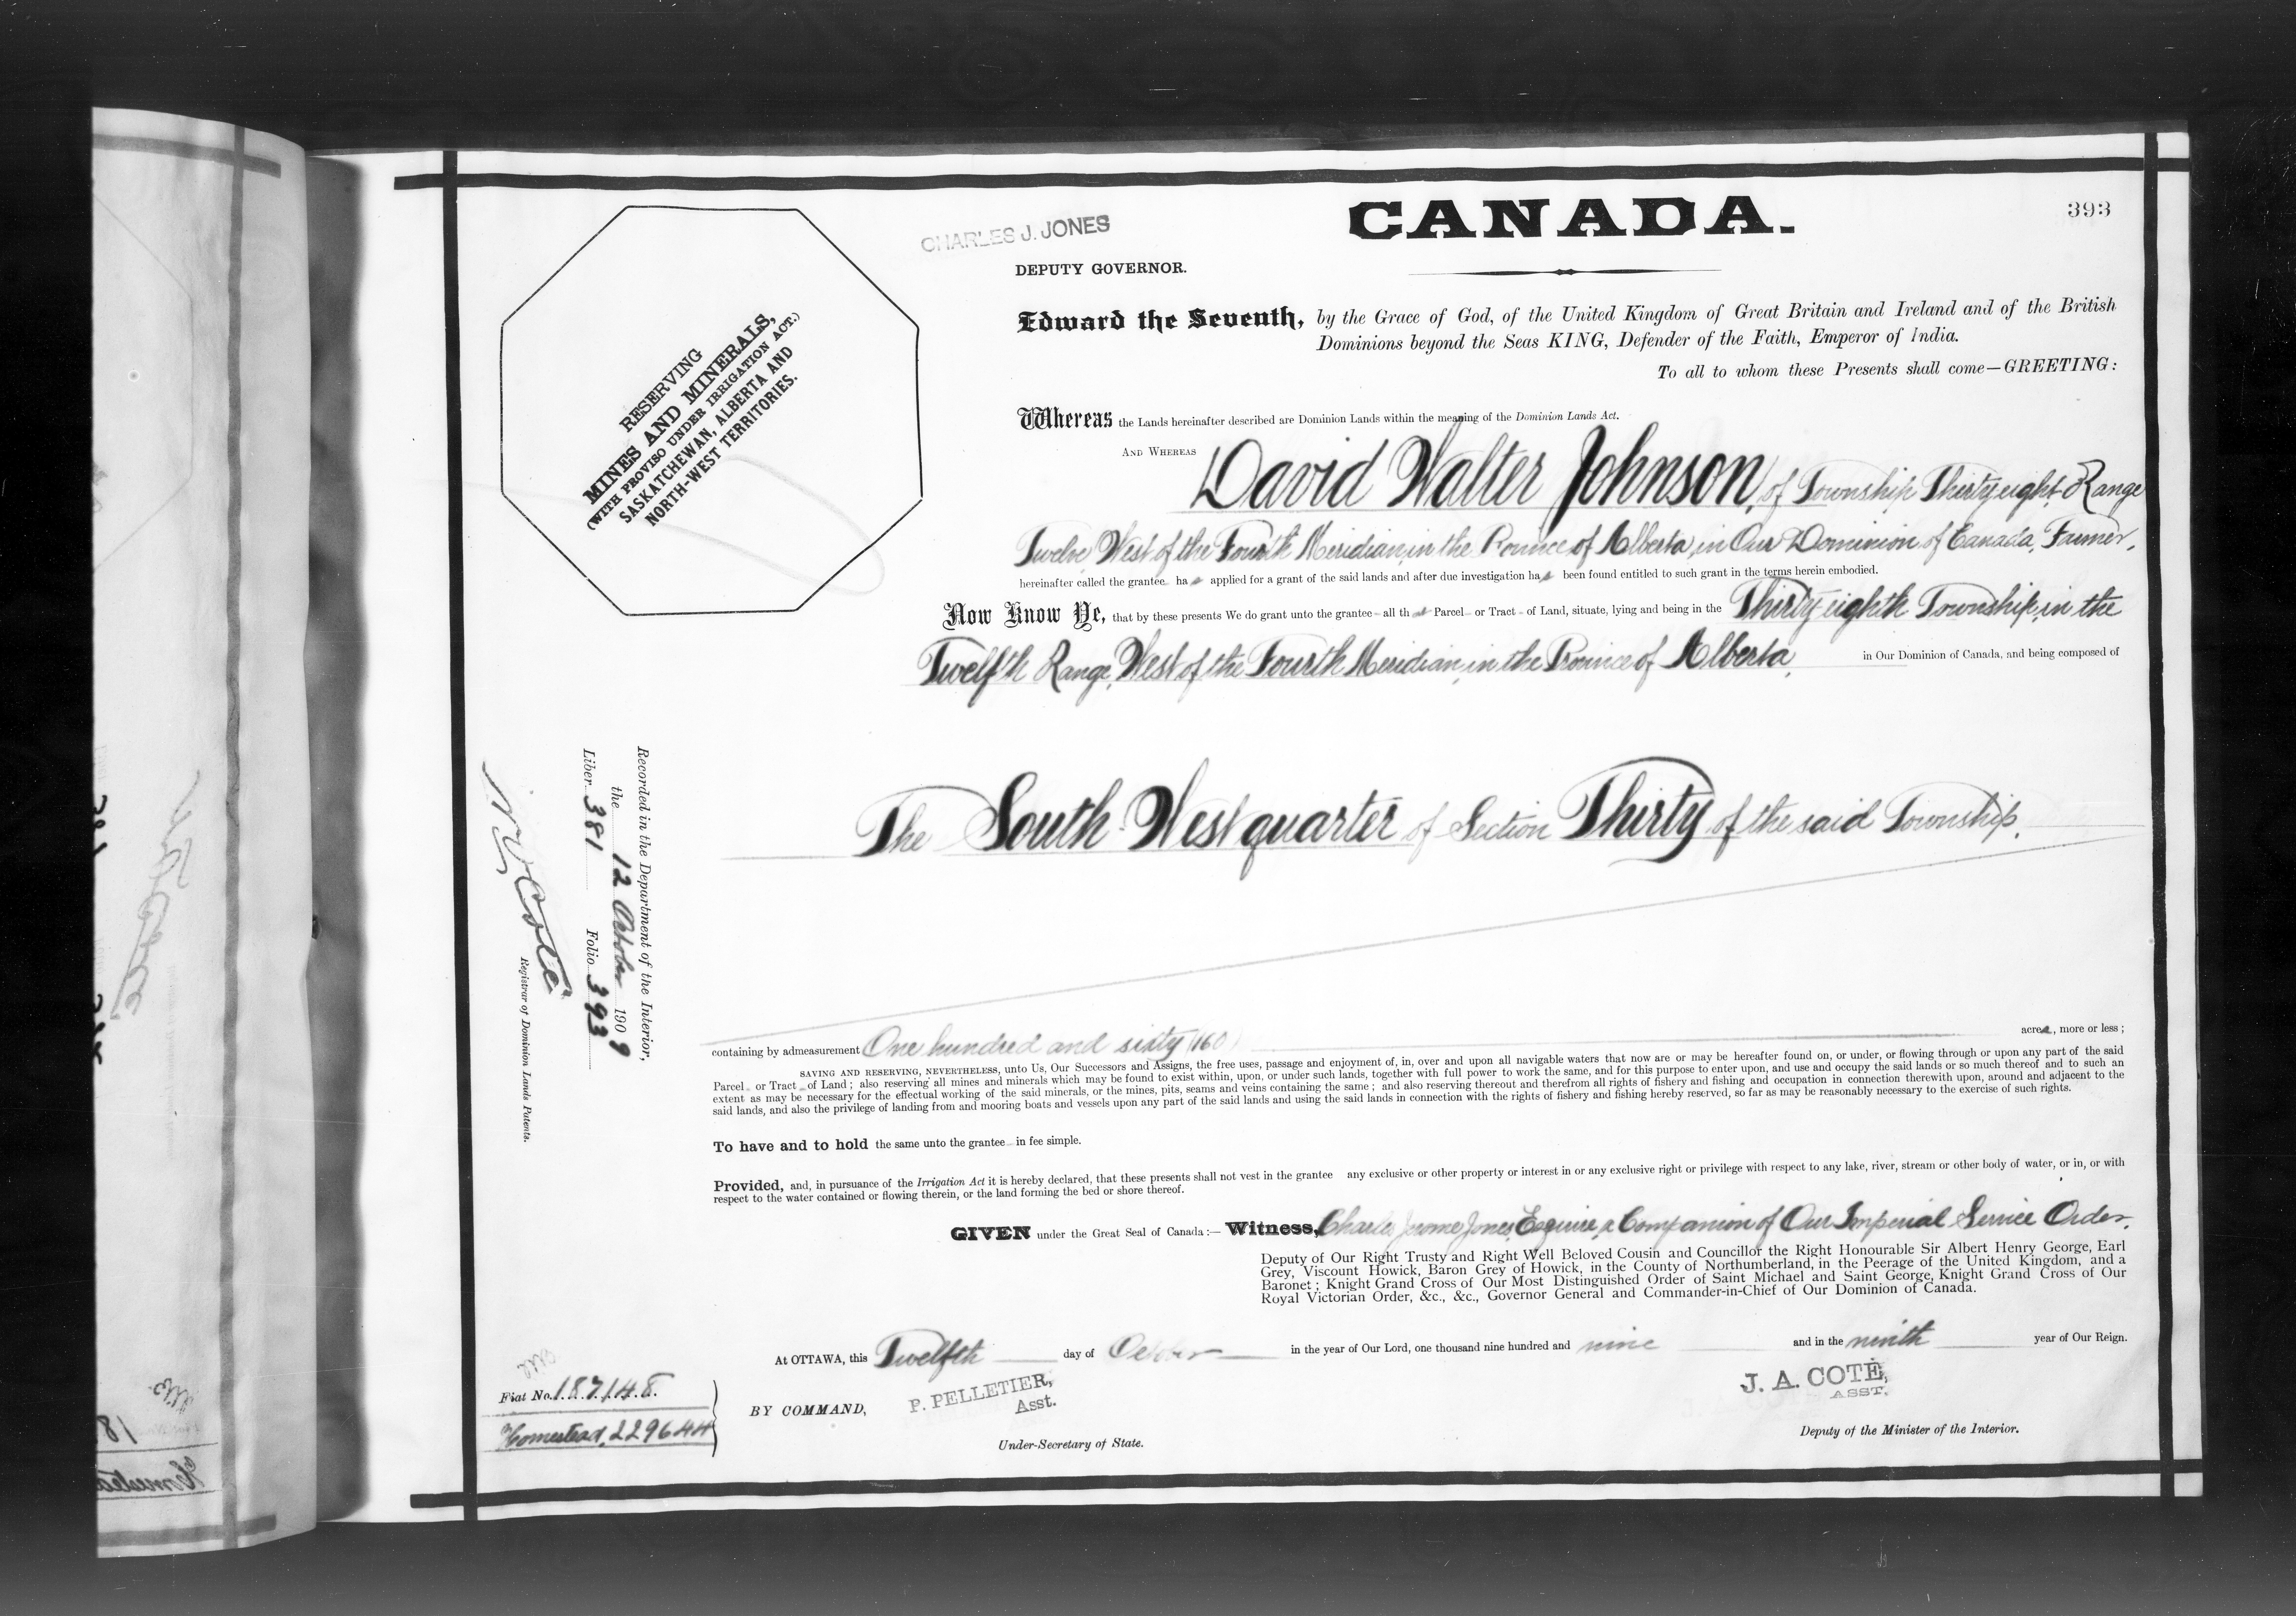 CANADA.
393
CHARLES J. JONES
DEPUTY GOVERNOR.
RESERVING
MINES AND MINERALS,
(WITH PROVISO UNDER IRRIGATION ACT.)
SASKATCHEWAN, ALBERTA AND
NORTH-WEST TERRITORIES.
Edward the Seventh, by the Grace of God, of the United Kingdom of Great Britain and Ireland and of the British
Dominions beyond the Seas KING, Defender of the Faith, Emperor of India.
To all to whom these Presents shall come—GREETING:
Whereas the Lands hereinafter described are Dominion Lands within the meaning of the Dominion Lands Act.
AND WHEREAS David Walter Johnson, of Township Thirty eight, Range
Twelve, West of the Fourth Meridian, in the Province of Alberta, in Our Dominion of Canada, Farmer,
hereinafter called the grantee has applied for a grant of the said lands and after due investigation has been found entitled to such grant in the terms herein embodied.
Now Know Ye, that by these presents We do grant unto the grantee all that Parcel or Tract of Land, situate, lying and being in the Thirty eighth Township, in the
Twelfth Range, West of the Fourth Meridian, in the Province of Alberta, in Our Dominion of Canada, and being composed of
The South West quarter of Section Thirty of the said Township.
Recorded in the Department of the Interior,
the 12 October 1909
Liber 381 Folio 393
N O Coté
Registrar of Dominion Lands Patents.
containing by admeasurement One hundred and sixty (160) acres, more or less;
SAVING AND RESERVING, NEVERTHELESS, unto Us, Our Successors and Assigns, the free uses, passage and enjoyment of, in, over and upon all navigable waters that now are or may be hereafter found on, or under, or flowing through or upon any part of the said
Parcel or Tract of Land; also reserving all mines and minerals which may be found to exist within, upon, or under such lands, together with full power to work the same, and for this purpose to enter upon, and use and occupy the said lands or so much thereof and to such an
extent as may be necessary for the effectual working of the said minerals, or the mines, pits, seams and veins containing the same; and also reserving thereout and therefrom all rights of fishery and fishing and occupation in connection therewith upon, around and adjacent to the
said lands, and also the privilege of landing from and mooring boats and vessels upon any part of the said lands and using the said lands in connection with the rights of fishery and fishing hereby reserved, so far as may be reasonably necessary to the exercise of such rights.
To have and to hold the same unto the grantee in fee simple.
Provided, and, in pursuance of the Irrigation Act it is hereby declared, that these presents shall not vest in the grantee any exclusive or other property or interest in or any exclusive right or privilege with respect to any lake, river, stream or other body of water, or in, or with
respect to the water contained or flowing therein, or the land forming the bed or shore thereof.
GIVEN under the Great Seal of Canada:— Witness, Charles Jerome Jones, Esquire, a Companion of Our Imperial Service Order,
Deputy of Our Right Trusty and Right Well Beloved Cousin and Councillor the Right Honourable Sir Albert Henry George, Earl
Grey, Viscount Howick, Baron Grey of Howick, in the County of Northumberland, in the Peerage of the United Kingdom, and a
Baronet; Knight Grand Cross of Our Most Distinguished Order of Saint Michael and Saint George, Knight Grand Cross of Our
Royal Victorian Order, &c., &c., Governor General and Commander-in-Chief of Our Dominion of Canada.
At OTTAWA, this Twelfth day of October in the year of Our Lord, one thousand nine hundred and nine and in the ninth year of Our Reign.
Fiat No. 187148.
Homestead, 229644
BY COMMAND,
P. PELLETIER,
Asst.
Under-Secretary of State.
J. A. COTÉ,
ASST.
Deputy of the Minister of the Interior.